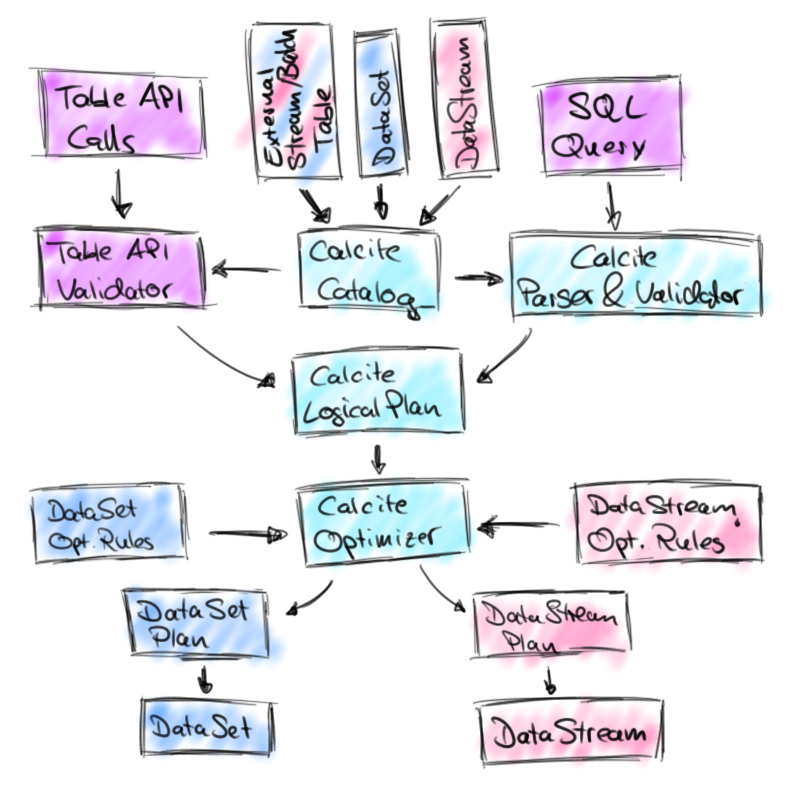 Table API
Calls
External
Stream/Batch
Table
DataSet
DataStream
SQL
Query
Table API
Validator
Calcite
Catalog
Calcite
Parser & Validator
Calcite
Logical Plan
DataSet
Opt. Rules
Calcite
Optimizer
DataStream
Opt. Rules
DataSet
Plan
DataStream
Plan
DataSet
DataStream